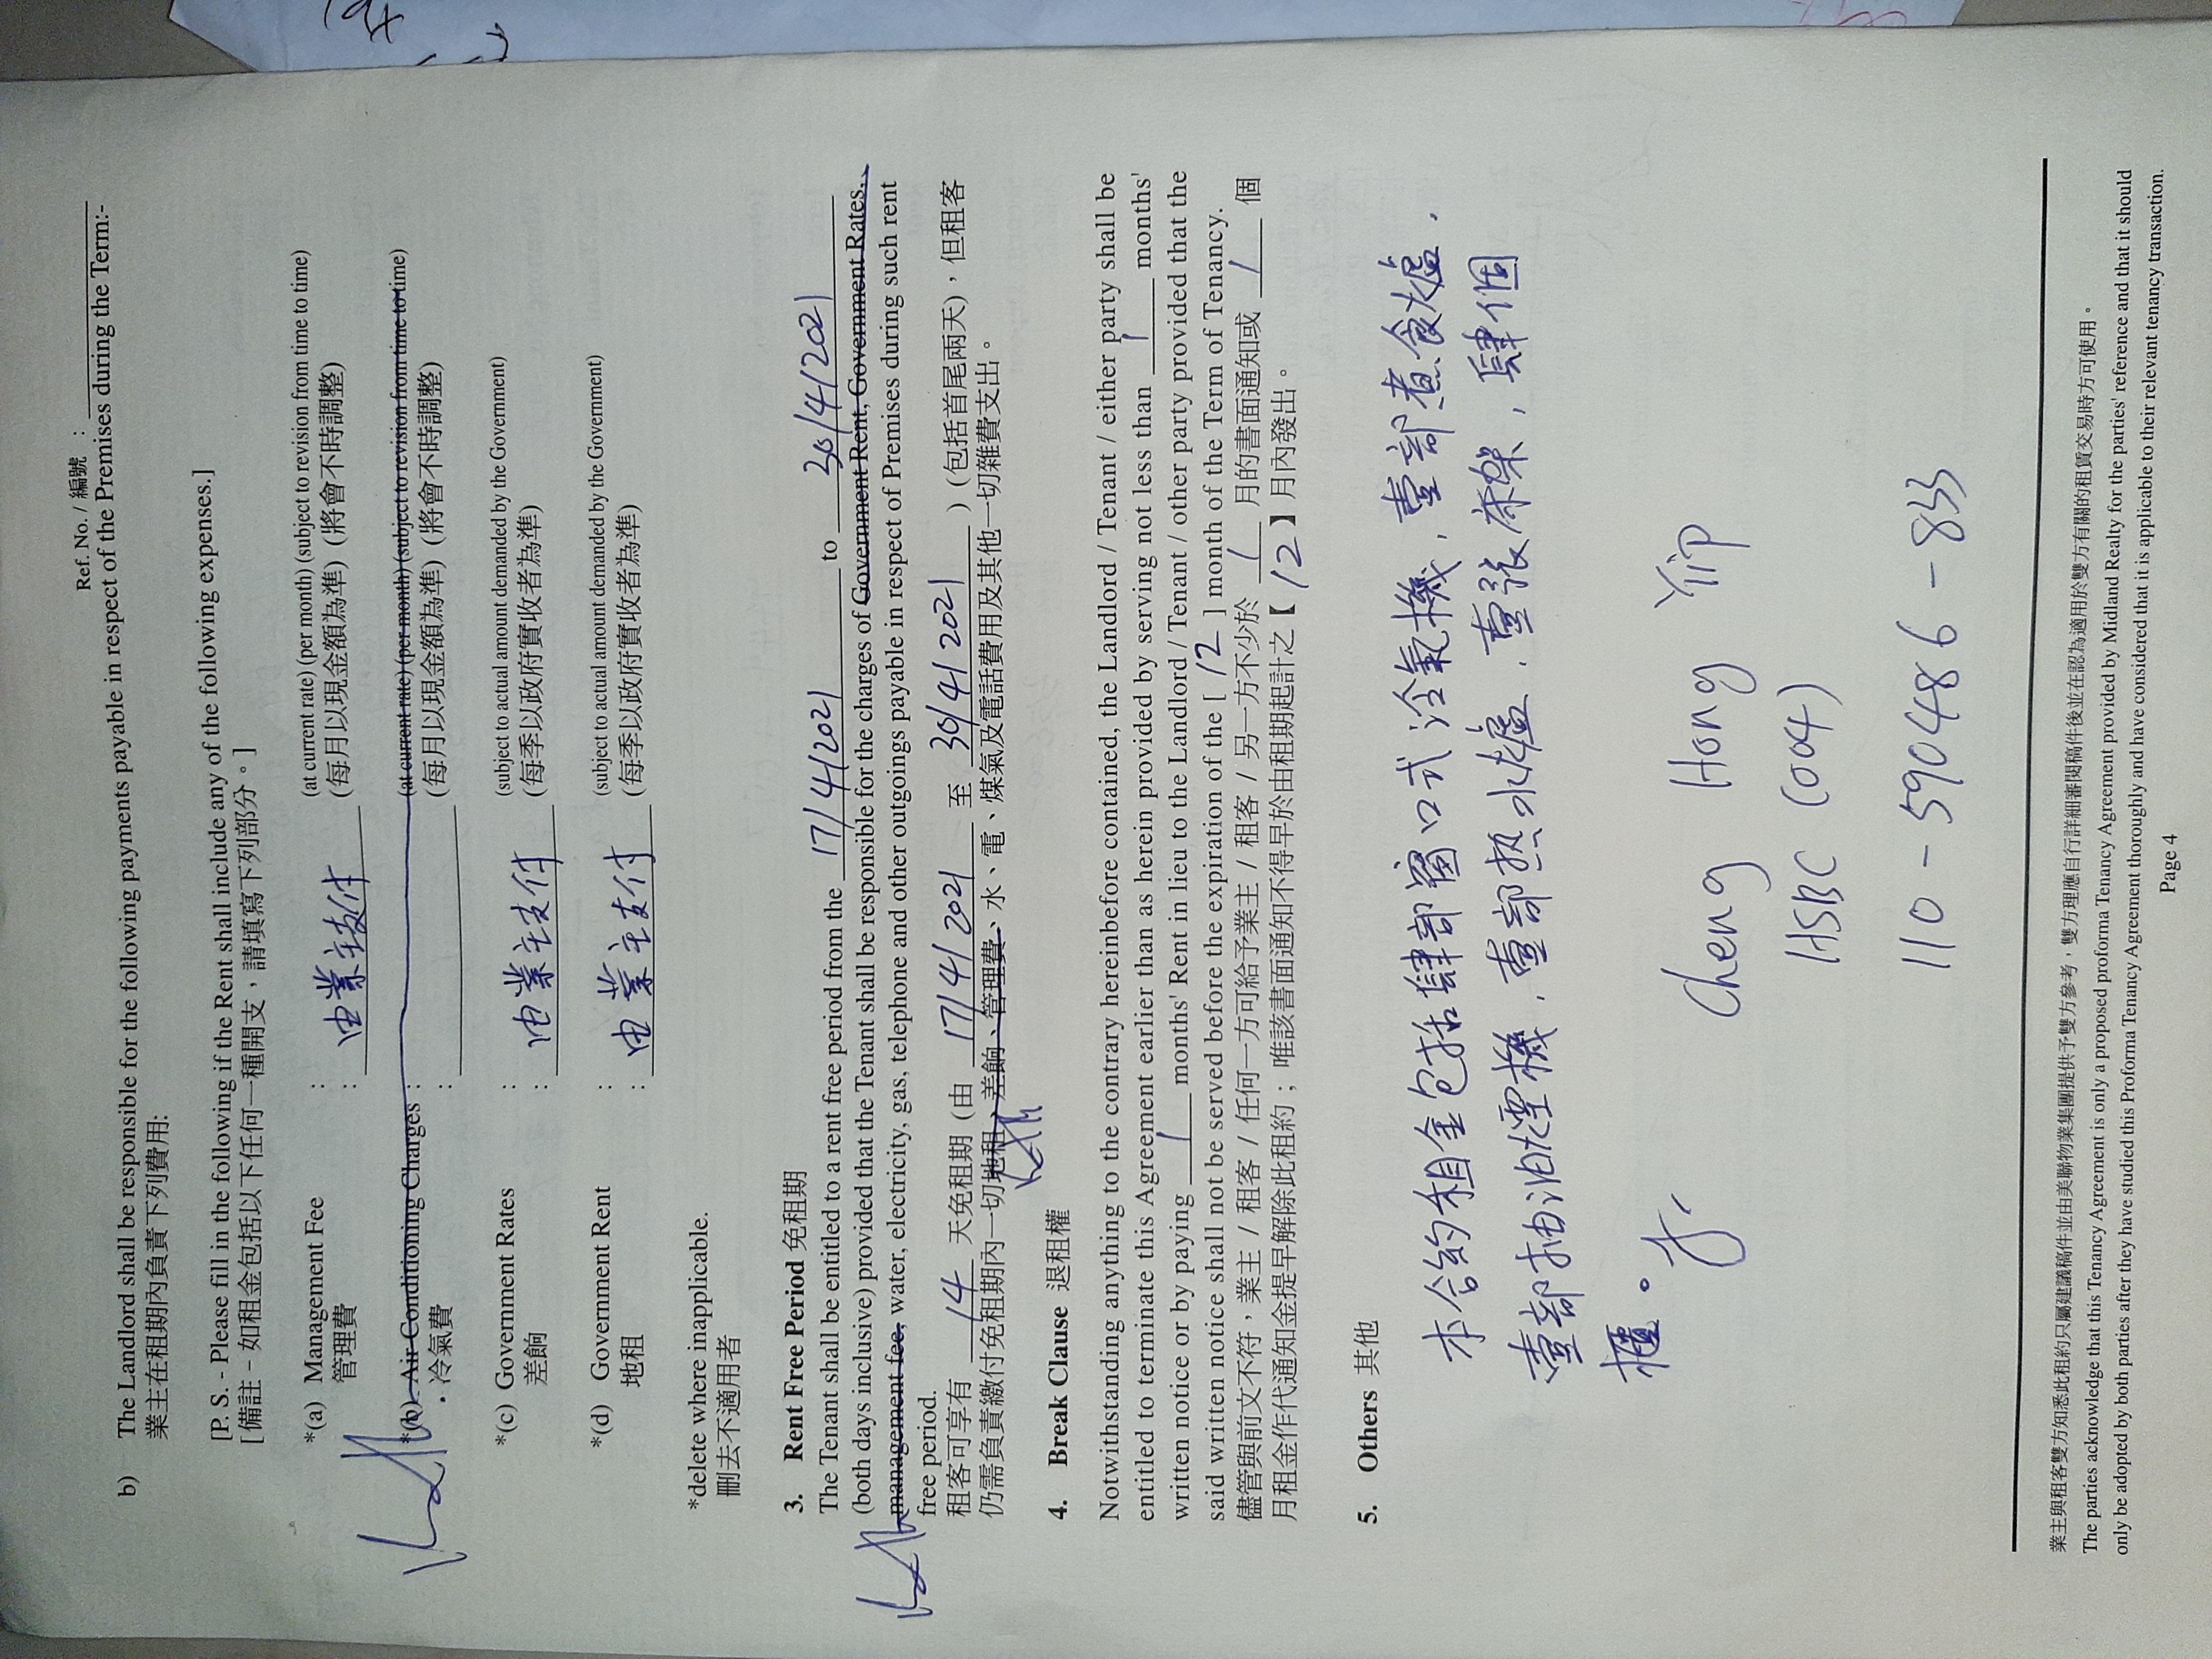 Ref. No. / 編號 :
b) The Landlord shall be responsible for the following payments payable in respect of the Premises during the Term:-
業主在租期內負責下列費用:
[P. S. - Please fill in the following if the Rent shall include any of the following expenses.]
[備註 - 如租金包括以下任何一種開支，請填寫下列部分。]
*(a) Management Fee : (at current rate) (per month) (subject to revision from time to time)
管理費 : 由業主支付 (每月以現金額為準) (將會不時調整)
*(b) Air-Conditioning Charges : (at current rate) (per month) (subject to revision from time to time)
冷氣費 : (每月以現金額為準) (將會不時調整)
*(c) Government Rates : (subject to actual amount demanded by the Government)
差餉 : 由業主支付 (每季以政府實收者為準)
*(d) Government Rent : (subject to actual amount demanded by the Government)
地租 : 由業主支付 (每季以政府實收者為準)
*delete where inapplicable.
刪去不適用者
3. Rent Free Period 免租期
The Tenant shall be entitled to a rent free period from the 17/4/2021 to 30/4/2021
(both days inclusive) provided that the Tenant shall be responsible for the charges of Government Rent, Government Rates,
management fee, water, electricity, gas, telephone and other outgoings payable in respect of Premises during such rent
free period.
租客可享有 14 天免租期 (由 17/4/2021 至 30/4/2021 ) (包括首尾兩天)，但租客
仍需負責繳付免租期內一切地租、差餉、管理費、水、電、煤氣及電話費用及其他一切雜費支出。
4. Break Clause 退租權
Notwithstanding anything to the contrary hereinbefore contained, the Landlord / Tenant / either party shall be
entitled to terminate this Agreement earlier than as herein provided by serving not less than 1 months'
written notice or by paying 1 months' Rent in lieu to the Landlord / Tenant / other party provided that the
said written notice shall not be served before the expiration of the [ 12 ] month of the Term of Tenancy.
儘管與前文不符，業主 / 租客 / 任何一方可給予業主 / 租客 / 另一方不少於 1 月的書面通知或 1 個
月租金作代通知金提早解除此租約；唯該書面通知不得早於由租期起計之【 12 】月內發出。
5. Others 其他
本合約租金包括肆部窗口式冷氣機, 壹部煮食爐,
壹部抽油煙機, 壹部热水爐, 壹張床架, 肆個
櫃。
Cheng Hong Yip
HSBC (004)
110-590486-833
業主與租客雙方知悉此租約只屬建議稿件並由美聯物業集團提供予雙方參考，雙方理應自行詳細審閱稿件後並在認為適用於雙方有關的租賃交易時方可使用。
The parties acknowledge that this Tenancy Agreement is only a proposed proforma Tenancy Agreement provided by Midland Realty for the parties' reference and that it should
only be adopted by both parties after they have studied this Proforma Tenancy Agreement thoroughly and have considered that it is applicable to their relevant tenancy transaction.
Page 4